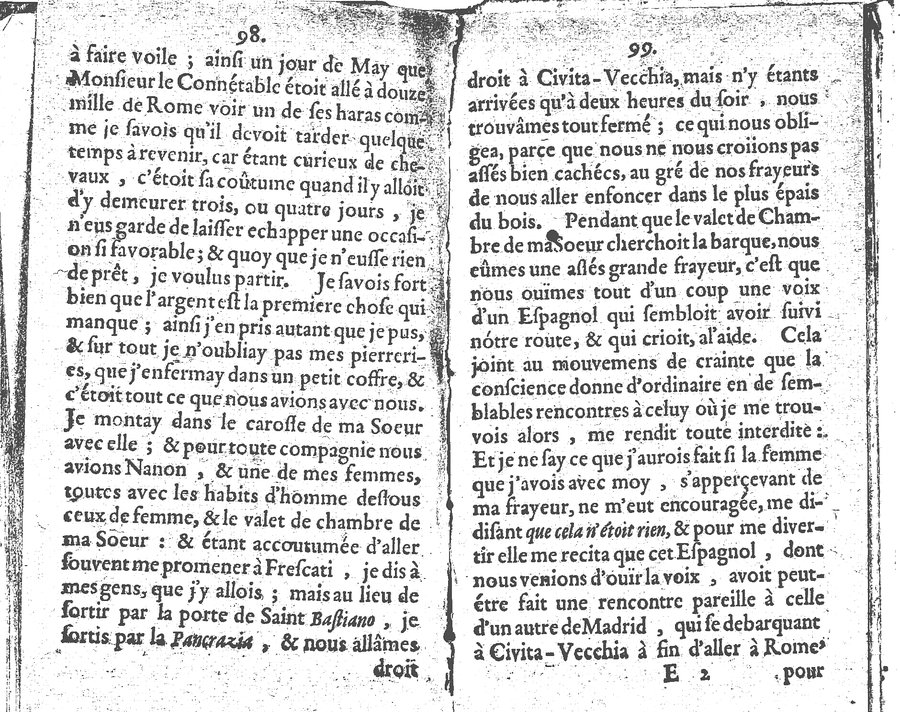 98.
à faire voile ; ainſi un jour de May que
Monſieur le Connétable étoit allé à douze
mille de Rome voir un de ſes haras com-
me je ſavois qu'il devoit tarder quelque
temps à revenir, car étant curieux de che-
vaux , c'étoit ſa coûtume quand il y alloit
d'y demeurer trois, ou quatre jours , je
n'eus garde de laiſſer echapper une occaſi-
on ſi favorable; & quoy que je n'euſſe rien
de prêt , je voulus partir. Je ſavois fort
bien que l'argent eſt la premiere choſe qui
manque ; ainſi j'en pris autant que je pus,
& ſur tout je n'oubliay pas mes pierreri-
es, que j'enfermay dans un petit coffre, &
c'étoit tout ce que nous avions avec nous.
Je montay dans le caroſſe de ma Soeur
avec elle ; & pour toute compagnie nous
avions Nanon , & une de mes femmes,
toutes avec les habits d'homme deſſous
ceux de femme, & le valet de chambre de
ma Soeur : & étant accoutumée d'aller
ſouvent me promener à Freſcati , je dis à
mes gens, que j'y allois ; mais au lieu de
ſortir par la porte de Saint Baſtiano , je
ſortis par la Pancrazia , & nous allâmes
droit
99.
droit à Civita-Vecchia, mais n'y étants
arrivées qu'à deux heures du ſoir , nous
trouvâmes tout fermé ; ce qui nous obli-
gea, parce que nous ne nous croiions pas
aſſés bien cachées, au gré de nos frayeurs
de nous aller enfoncer dans le plus épais
du bois. Pendant que le valet de Cham-
bre de ma Soeur cherchoit la barque, nous
eûmes une aſſés grande frayeur, c'eſt que
nous ouïmes tout d'un coup une voix
d'un Eſpagnol qui ſembloit avoir ſuivi
nótre route, & qui crioit, al'aide. Cela
joint au mouvemens de crainte que la
conſcience donne d'ordinaire en de ſem-
blables rencontres à celuy où je me trou-
vois alors , me rendit toute interdite :
Et je ne ſay ce que j'aurois fait ſi la femme
que j'avois avec moy , s'apperçevant de
ma frayeur, ne m'eut encouragée, me di-
diſant que cela n'étoit rien, & pour me diver-
tir elle me recita que cet Eſpagnol , dont
nous venions d'ouïr la voix , avoit peut-
étre fait une rencontre pareille à celle
d'un autre de Madrid , qui ſe debarquant
à Civita-Vecchia à fin d'aller à Rome
E 2 pour